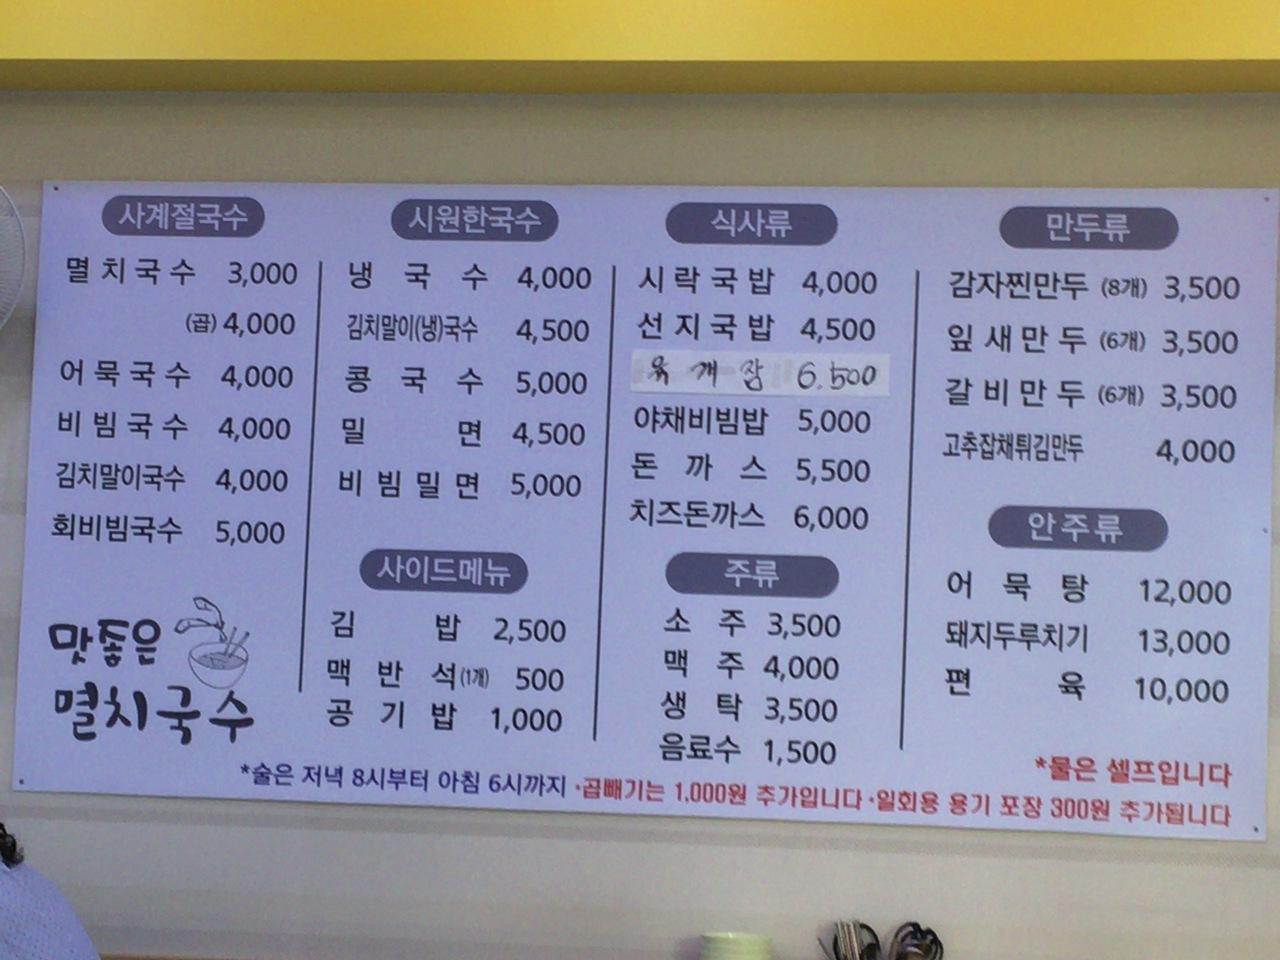 사계절국수
멸치국수 3,000
(곱) 4,000
어묵국수 4,000
비빔국수 4,000
김치말이국수 4,000
회비빔국수 5,000
맛좋은
멸치국수
시원한국수
냉국수 4,000
김치말이(냉)국수 4,500
콩국수 5,000
밀면 4,500
비빔밀면 5,000
사이드메뉴
김밥 2,500
맥반석(1개) 500
공기밥 1,000
식사류
시락국밥 4,000
선지국밥 4,500
육개장 6.500
야채비빔밥 5,000
돈까스 5,500
치즈돈까스 6,000
주류
소주 3,500
맥주 4,000
생탁 3,500
음료수 1,500
만두류
감자찐만두 (8개) 3,500
잎새만두 (6개) 3,500
갈비만두 (6개) 3,500
고추잡채튀김만두 4,000
안주류
어묵탕 12,000
돼지두루치기 13,000
편육 10,000
*물은 셀프입니다
*술은 저녁 8시부터 아침 6시까지 ·곱빼기는 1,000원 추가입니다 ·일회용 용기 포장 300원 추가됩니다